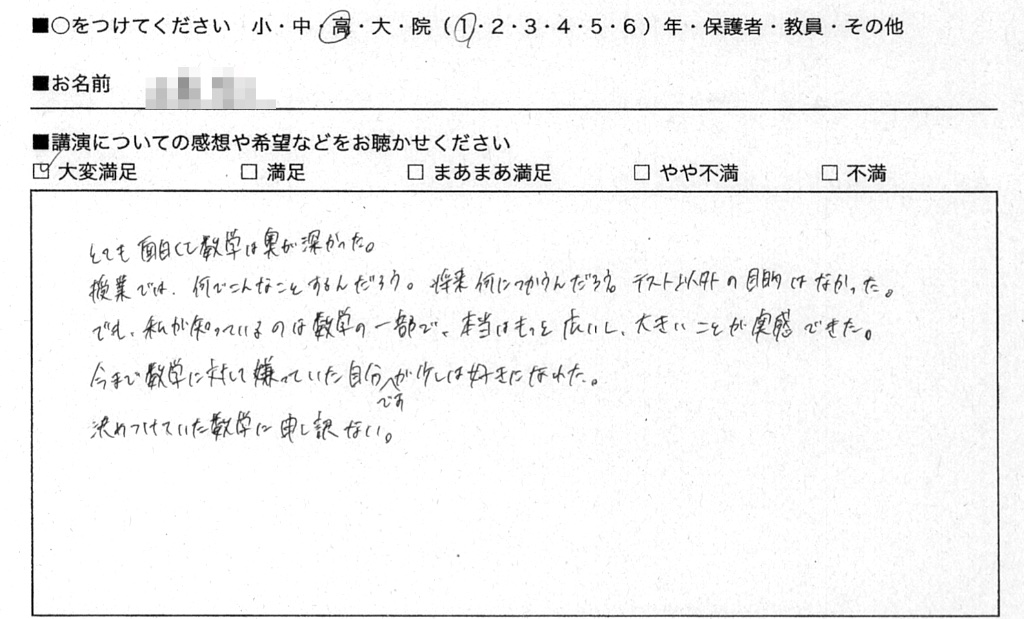 ■○をつけてください 小・中・高・大・院（1・2・3・4・5・6）年・保護者・教員・その他
■お名前
■講演についての感想や希望などをお聴かせください
□大変満足 □満足 □まあまあ満足 □やや不満 □不満
とても面白くて数学は奥が深かった。
授業では、何でこんなことするんだろう。将来何につかうんだろう。テスト以外の目的はなかった。
でも、私が知っているのは数学の一部で、本当はもっと広いし、大きいことが実感できた。
今まで数学に対して嫌っていた自分ですが少しは好きになれた。
決めつけていた数学に申し訳ない。